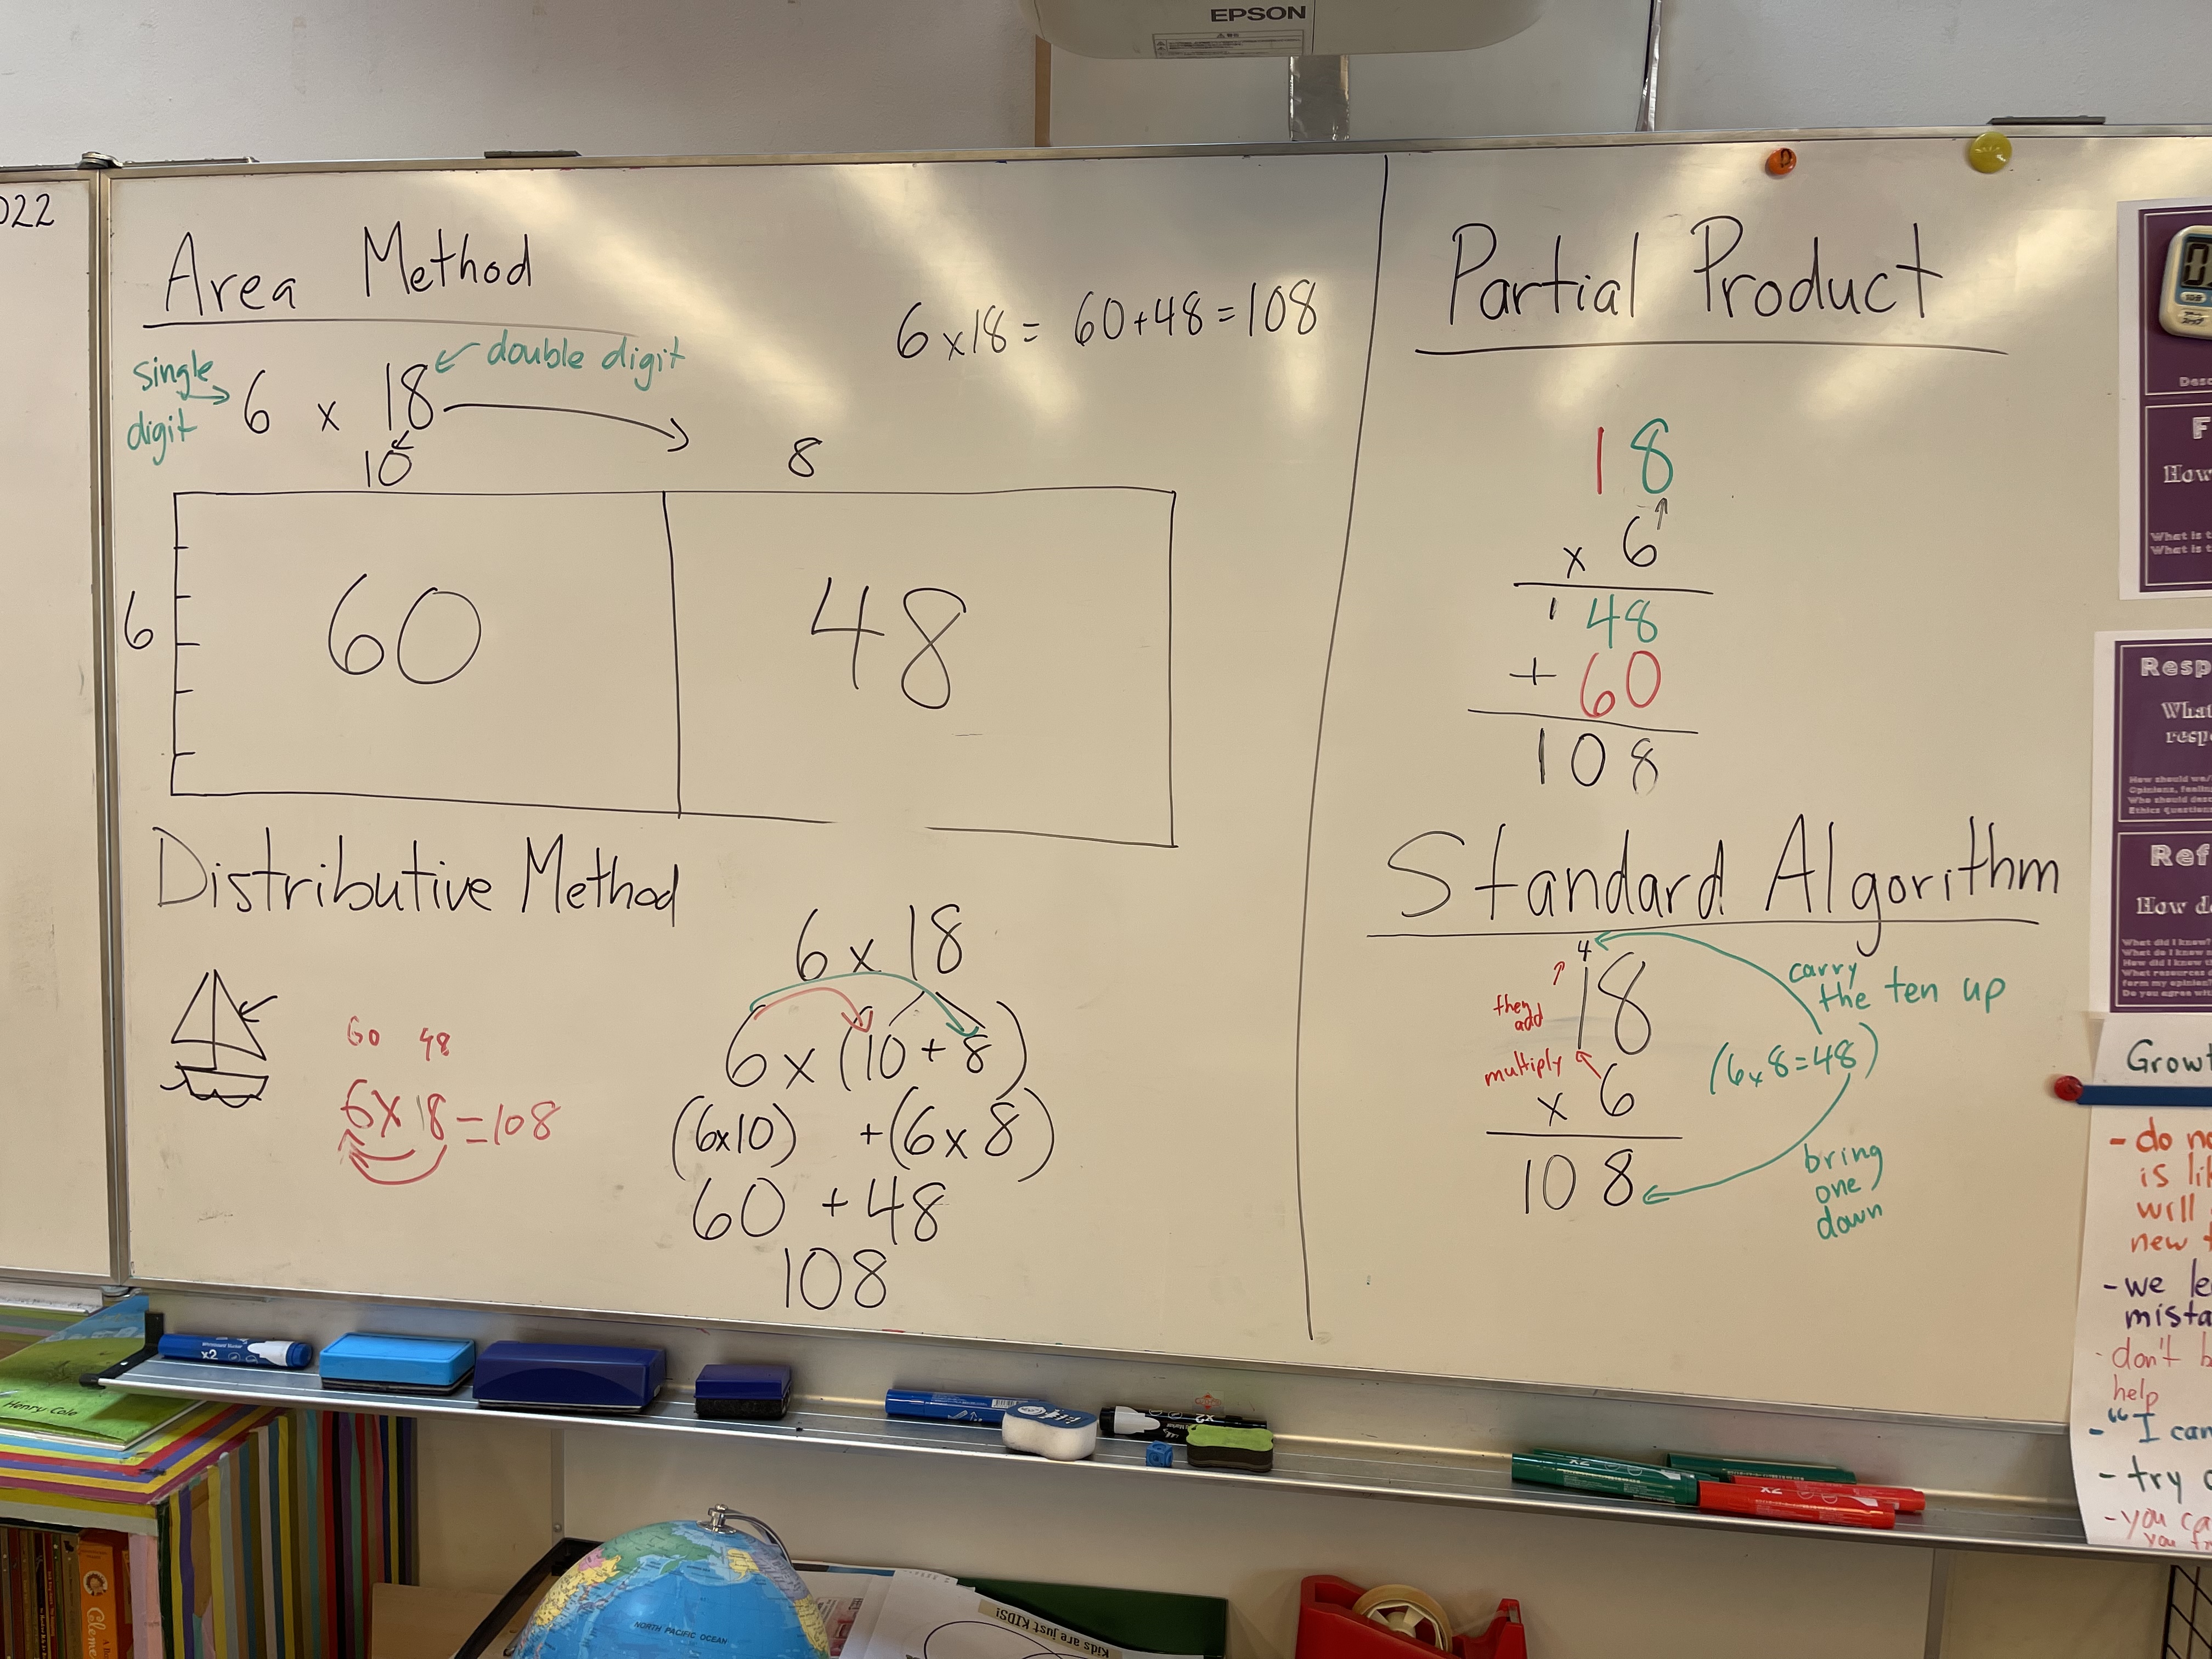 EPSON
022
Area Method
6 x 18 = 60 + 48 = 108
single
digit
double digit
6 x 18
10
8
6
60
48
Distributive Method
6 x 18
6 x (10 + 8)
(6x10) + (6 x 8)
60 + 48
108
60 48
6 x 18 = 108
Partial Product
18
x 6
1 48
+ 60
108
Standard Algorithm
4
18
x 6
108
then
add
multiply
carry
the ten up
(6 x 8 = 48)
bring
one
down
Desc
F
How
What is t
What is t
Resp
What
resp
How should we/
Opinions, feelin
Who should
Ethics Question
Ref
How d
What did I know?
What do I know n
How did I know th
What resources
form my opinion?
Do you agree wit
Growt
- do no
is li
will
new t
- we le
mista
- don't b
help
- "I can
- try
- you ca
you
x2
Henry Cole
Cleme
NORTH PACIFIC OCEAN
Kids are just KIDS!